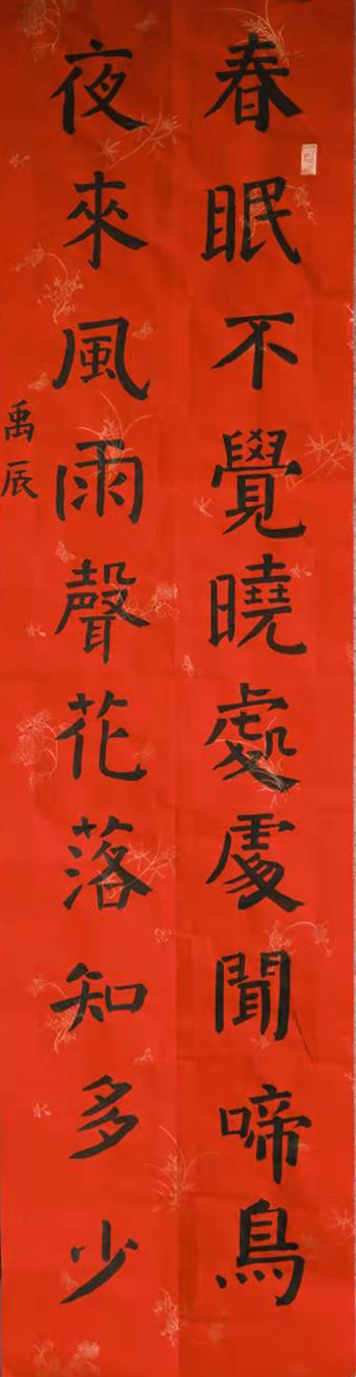 春眠不覺曉處處聞啼鳥
夜來風雨聲花落知多少
禹辰